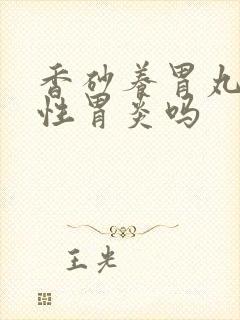 香砂养胃丸
性胃炎吗
王光